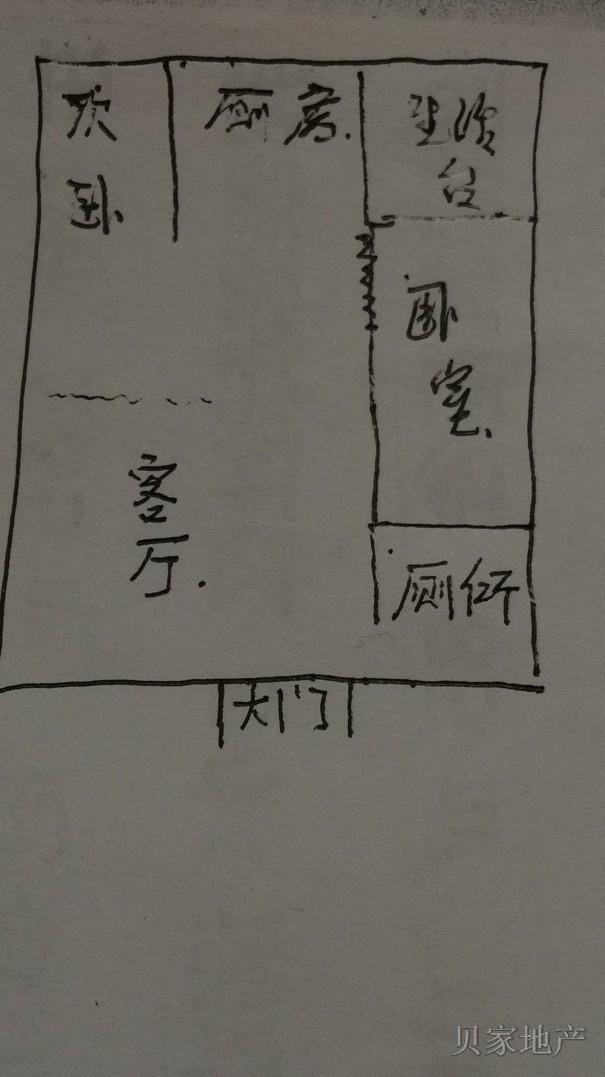 次卧
厨房.
生活台
卧室.
客厅.
厕所
大门
贝家地产